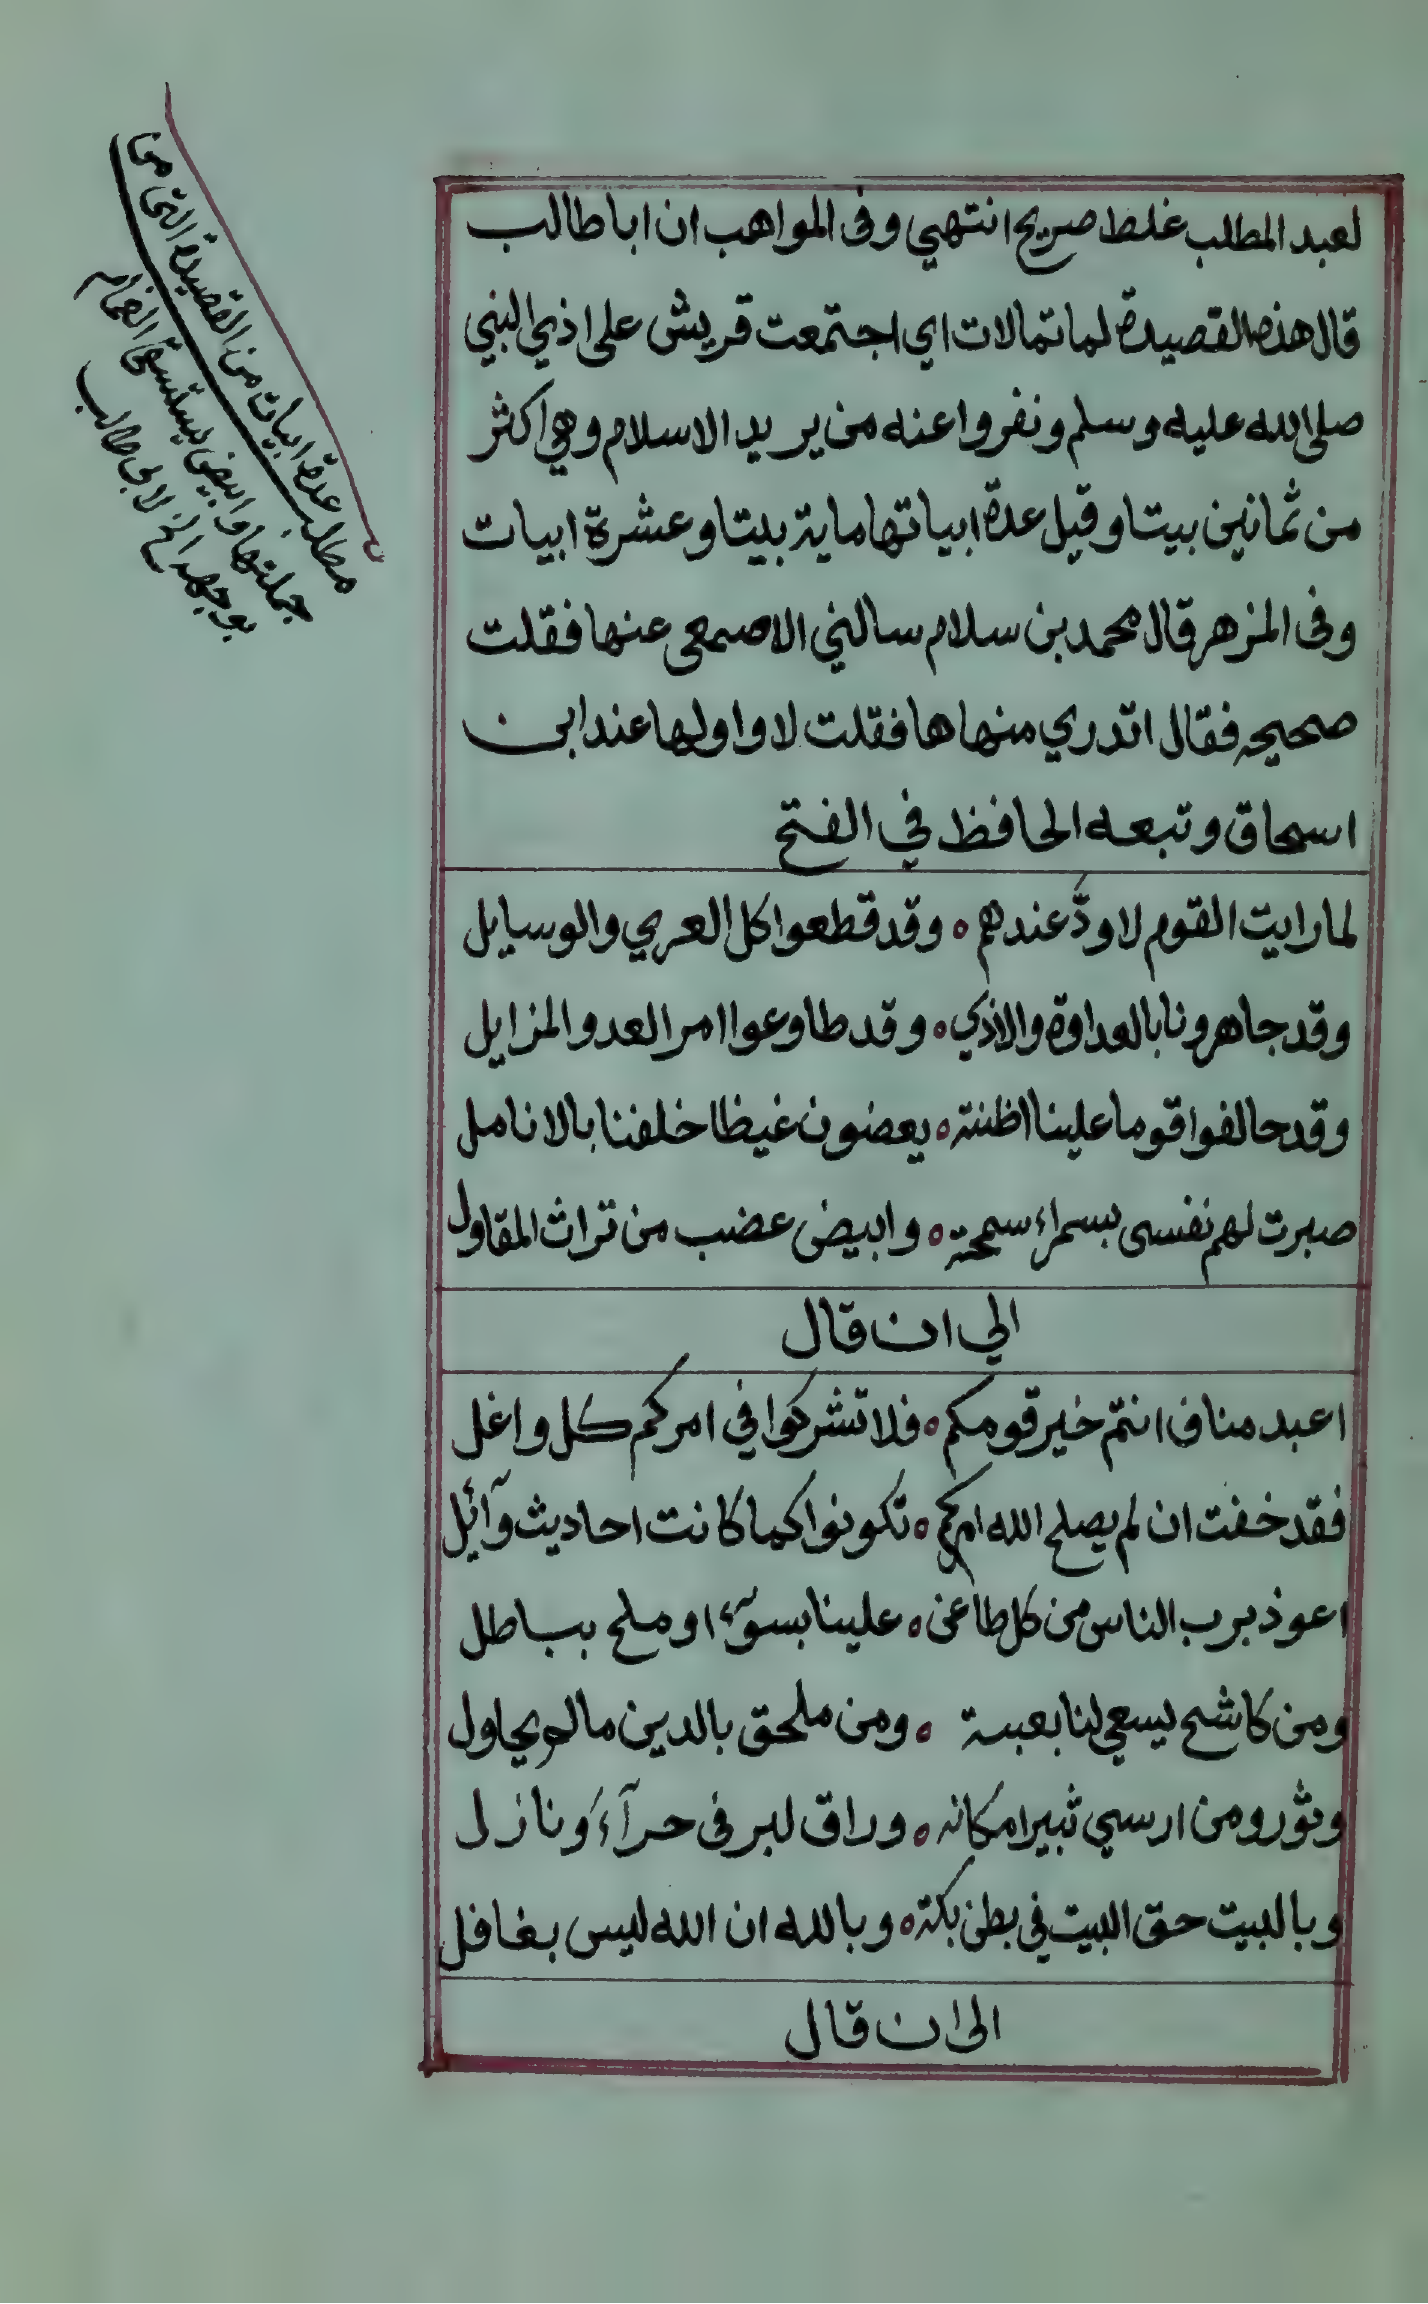 لعبد المطلب غلط صريح انتهي وفى المواهب ان اباطالب
قال هذه القصيدة لما تمالات اي اجتمعت قريش على اذي النبي
صلى الله عليه وسلم ونفروا عنه من يريد الاسلام وهي اكثر
من ثمانين بيتا وقيل عدة ابياتها ماية بيتا وعشرة ابيات
وفى المزهر قال محمد بن سلام سالني الاصمعى عنها فقلت
صحيحه فقال اتدري منهاها فقلت لا واولها عند ابن
اسحاق وتبعه الحافظ في الفتح
لما رايت القوم لا ودّ عندهم ه وقد قطعوا كل العري والوسايل
وقد جاهرونا بالعداوة والاذي ه وقد طاوعوا امر العدو المزايل
وقد حالفوا قوما علينا اظنة ه يعضون غيظا خلفنا بالانامل
صبرت لهم نفسى بسمراء سمحة ه وابيض عضب من تراث المقاول
الي ان قال
اعبد مناف انتم خير قومكم ه فلا تشركوا في امركم كل واغل
فقد خفت ان لم يصلح الله امركم ه تكونوا كما كانت احاديث وآئل
اعوذ برب الناس من كل طاعن ه علينا بسوٓء او ملح بباطل
ومن كاشح يسعي لنا بعيبة ه ومن ملحق بالدين ما لم يحاول
وثور ومن ارسي ثبيرا مكانه ه وراق لبر فى حرآء ونازل
وبالبيت حق البيت في بطن بكة ه وبالله ان الله ليس بغافل
الى ان قال
مطلب عدة ابيات من القصيدة التى من
جملتها وابيض يستسقى الغمام
بوجهه الخ لابى طالب